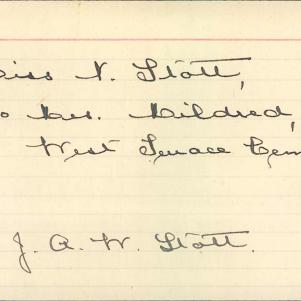 Miss N. Stott,
Mrs. Mildred,
West Terrace Cem
J. A. W. Stott.